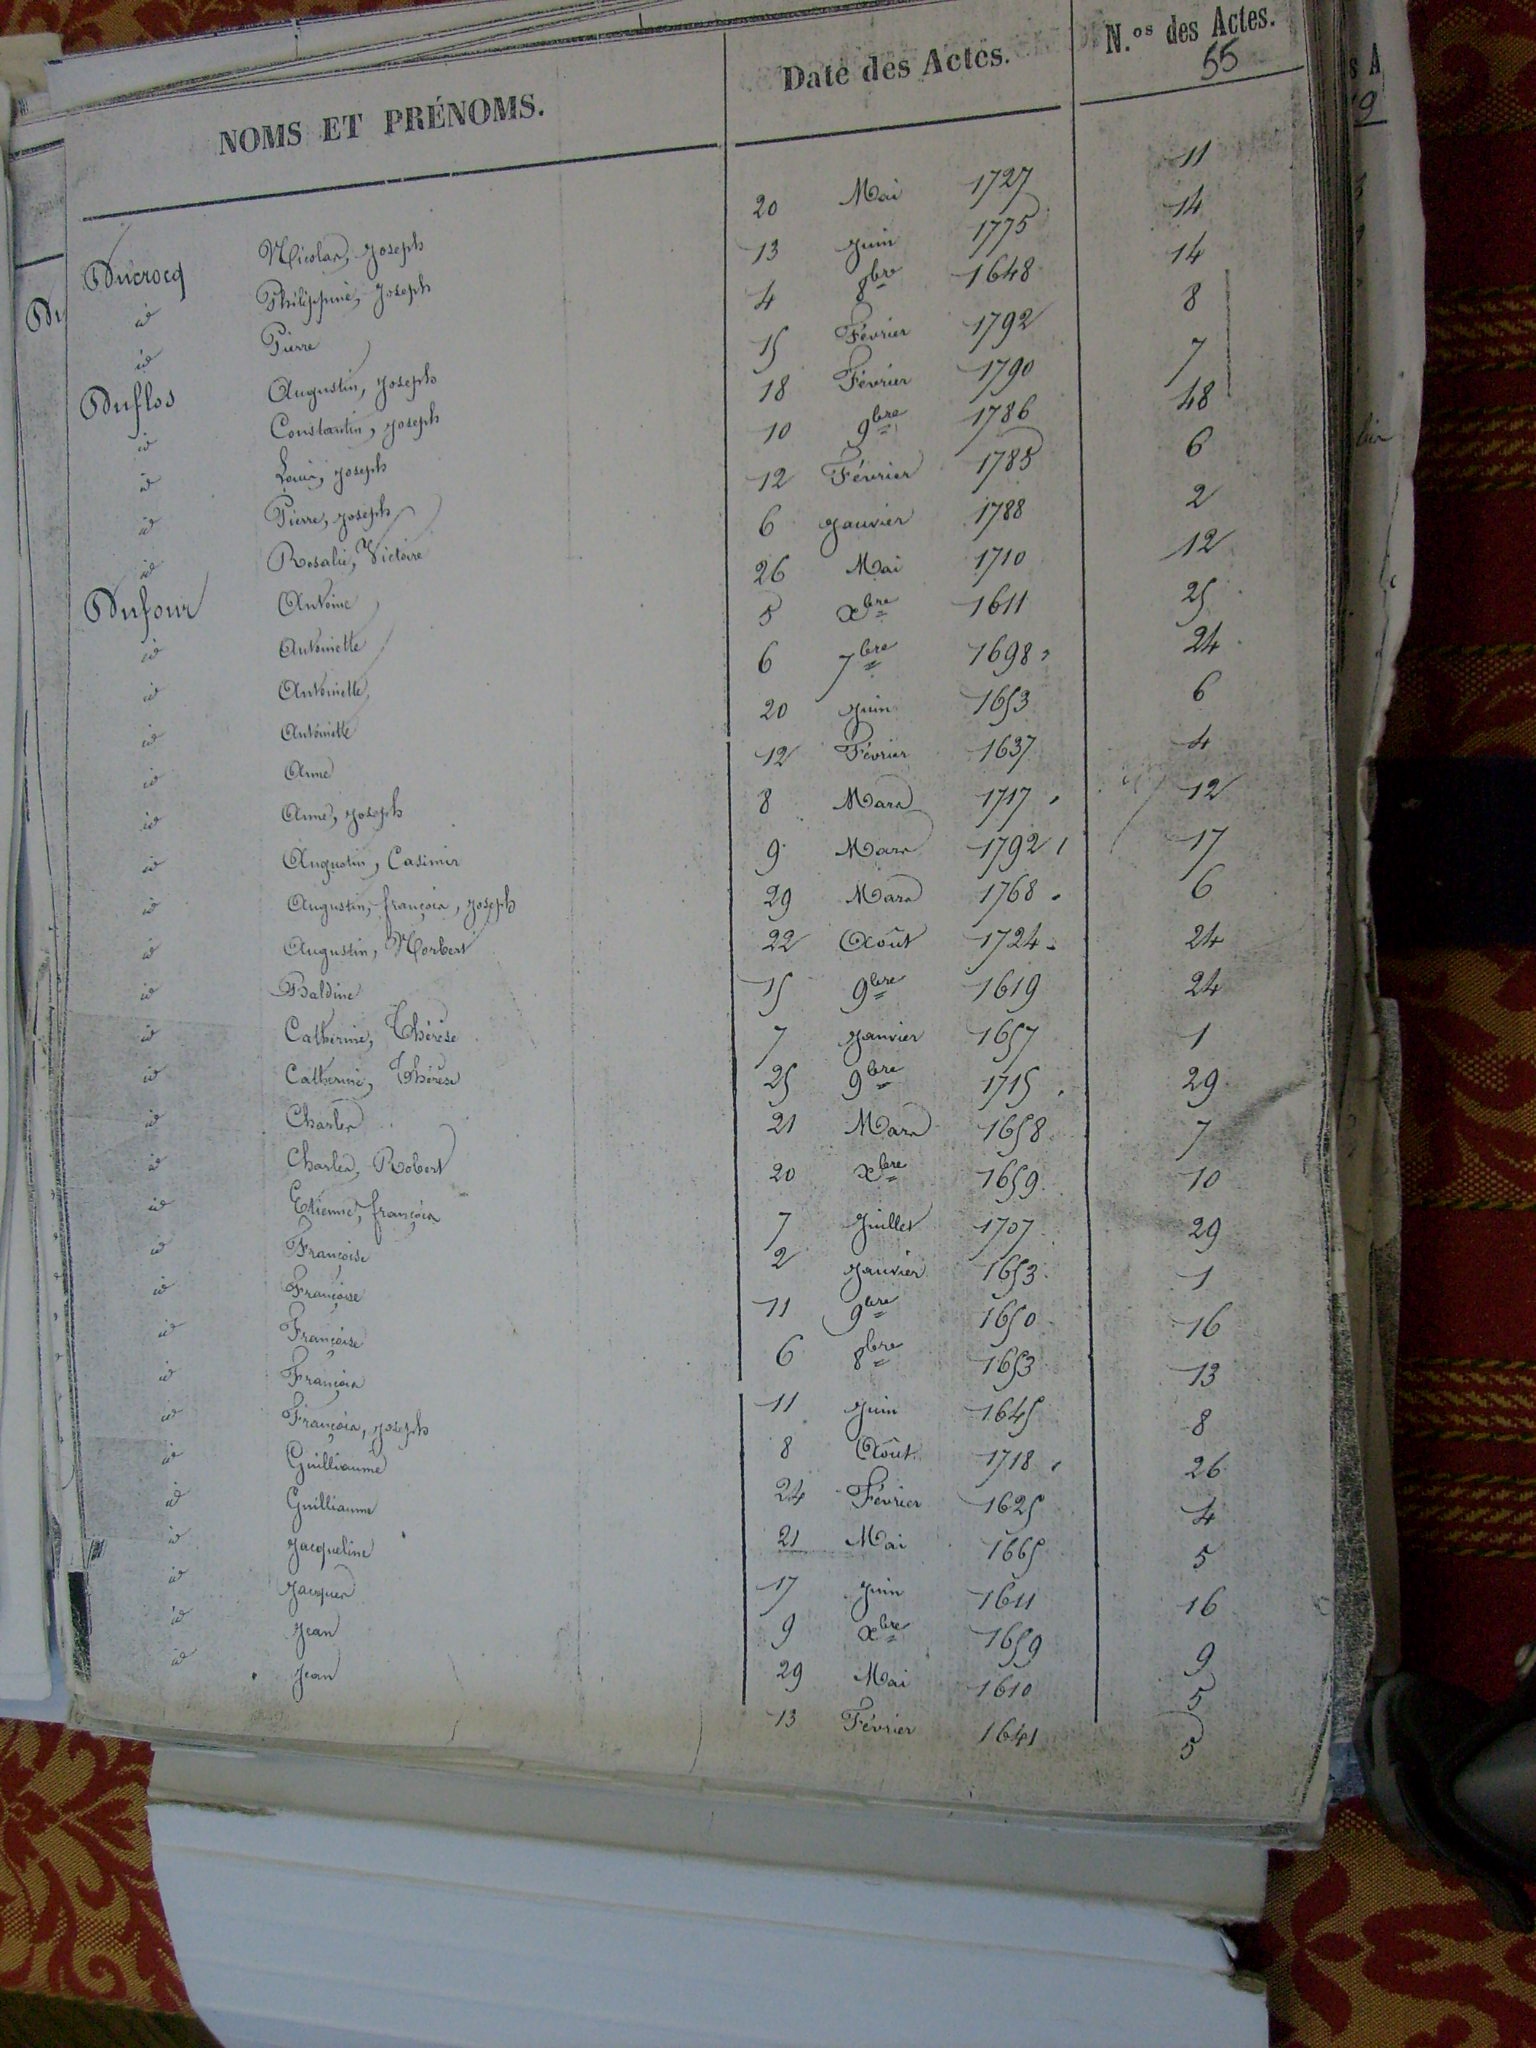 NOMS ET PRÉNOMS. Date des Actes. N.os des Actes.
55
Ducrocq Nicolas, Joseph 20 Mai 1727 11
id Philippine, Joseph 13 Juin 1775 14
id Pierre 4 8bre 1648 14
Duflos Augustin, Joseph 15 Février 1792 8
id Constantin, Joseph 18 Février 1790 7
id Louis, Joseph 10 9bre 1786 48
id Pierre, Joseph 12 Février 1785 6
id Rosalie, Victoire 6 Janvier 1788 2
Dufour Antoine 26 Mai 1710 12
id Antoinette 5 xbre 1611 25
id Antoinette 6 7bre 1698 24
id Antoinette 20 Juin 1653 6
id Anne 12 Février 1637 4
id Anne, Joseph 8 Mars 1717 12
id Augustin, Casimir 9 Mars 1792 17
id Augustin, françois, Joseph 29 Mars 1768 6
id Augustin, Norbert 22 Août 1724 24
id Baldine 15 9bre 1619 24
id Catherine, Thérèse 7 Janvier 1657 1
id Catherine, Thérèse 25 9bre 1715 29
id Charles 21 Mars 1658 7
id Charles, Robert 20 xbre 1659 10
id Etienne, françois 7 Juillet 1707 29
id Françoise 2 Janvier 1653 1
id Françoise 11 9bre 1650 16
id Françoise 6 8bre 1653 13
id François 11 Juin 1645 8
id François, Joseph 8 Août 1718 26
id Guilliaume 24 Février 1625 4
id Guilliaume 21 Mai 1665 5
id Jacqueline 17 Juin 1611 16
id Jacques 9 xbre 1659 9
id Jean 29 Mai 1610 5
id Jean 13 Février 1641 5